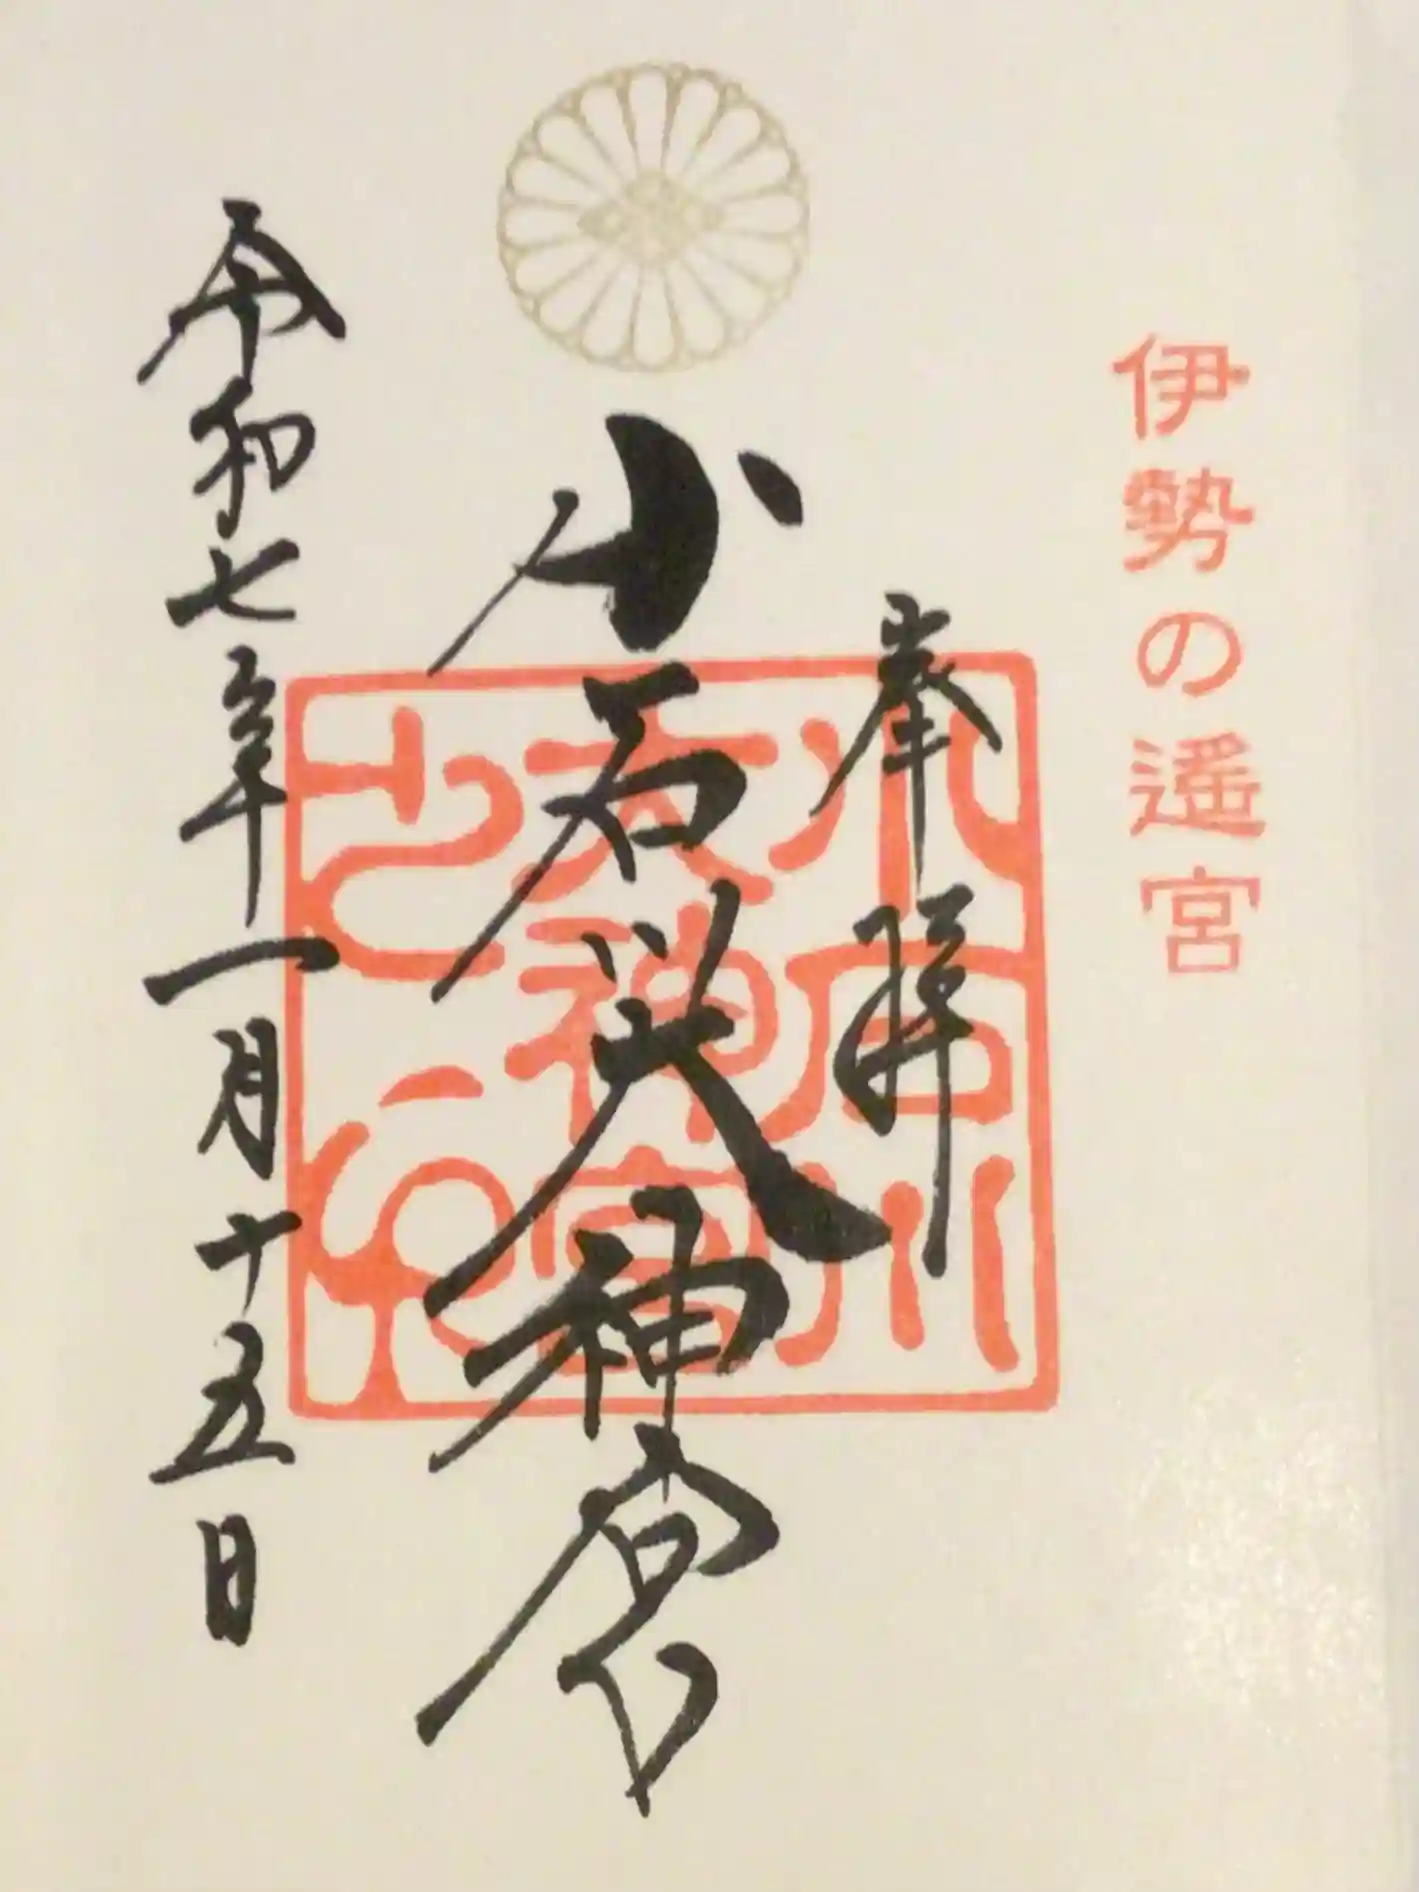 伊勢の遥宮
奉拝
小石川大神宮
令和七年一月十五日
小石川
大神宮
之印